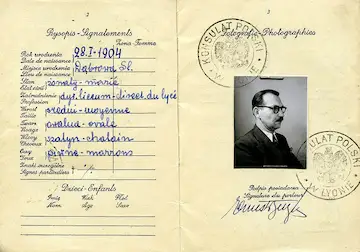 2
Rysopis-Signalements
Żona-Femme
Rok urodzenia 28.I-1904
Date de naissance
Miejsce urodzenia Dąbrowa Śl.
Lieu de naissance
Stan żonaty-marié
Etat civil
Zatrudnienie dyr. liceum-direct. du lycé
Profession
Wzrost średni-moyenne
Taille
Twarz owalna-ovale
Visage
Włosy szatyn-chatain
Cheveux
Oczy piwne-marrons
Yeux
Znaki szczególne
Signes particuliers
Dzieci-Enfants
Imię Wiek Płeć
Nom Age Sexe
3
Fotografie-Photographies
KONSULAT POLSKI
W LYONIE
Podpis posiadacza
Signature du porteur